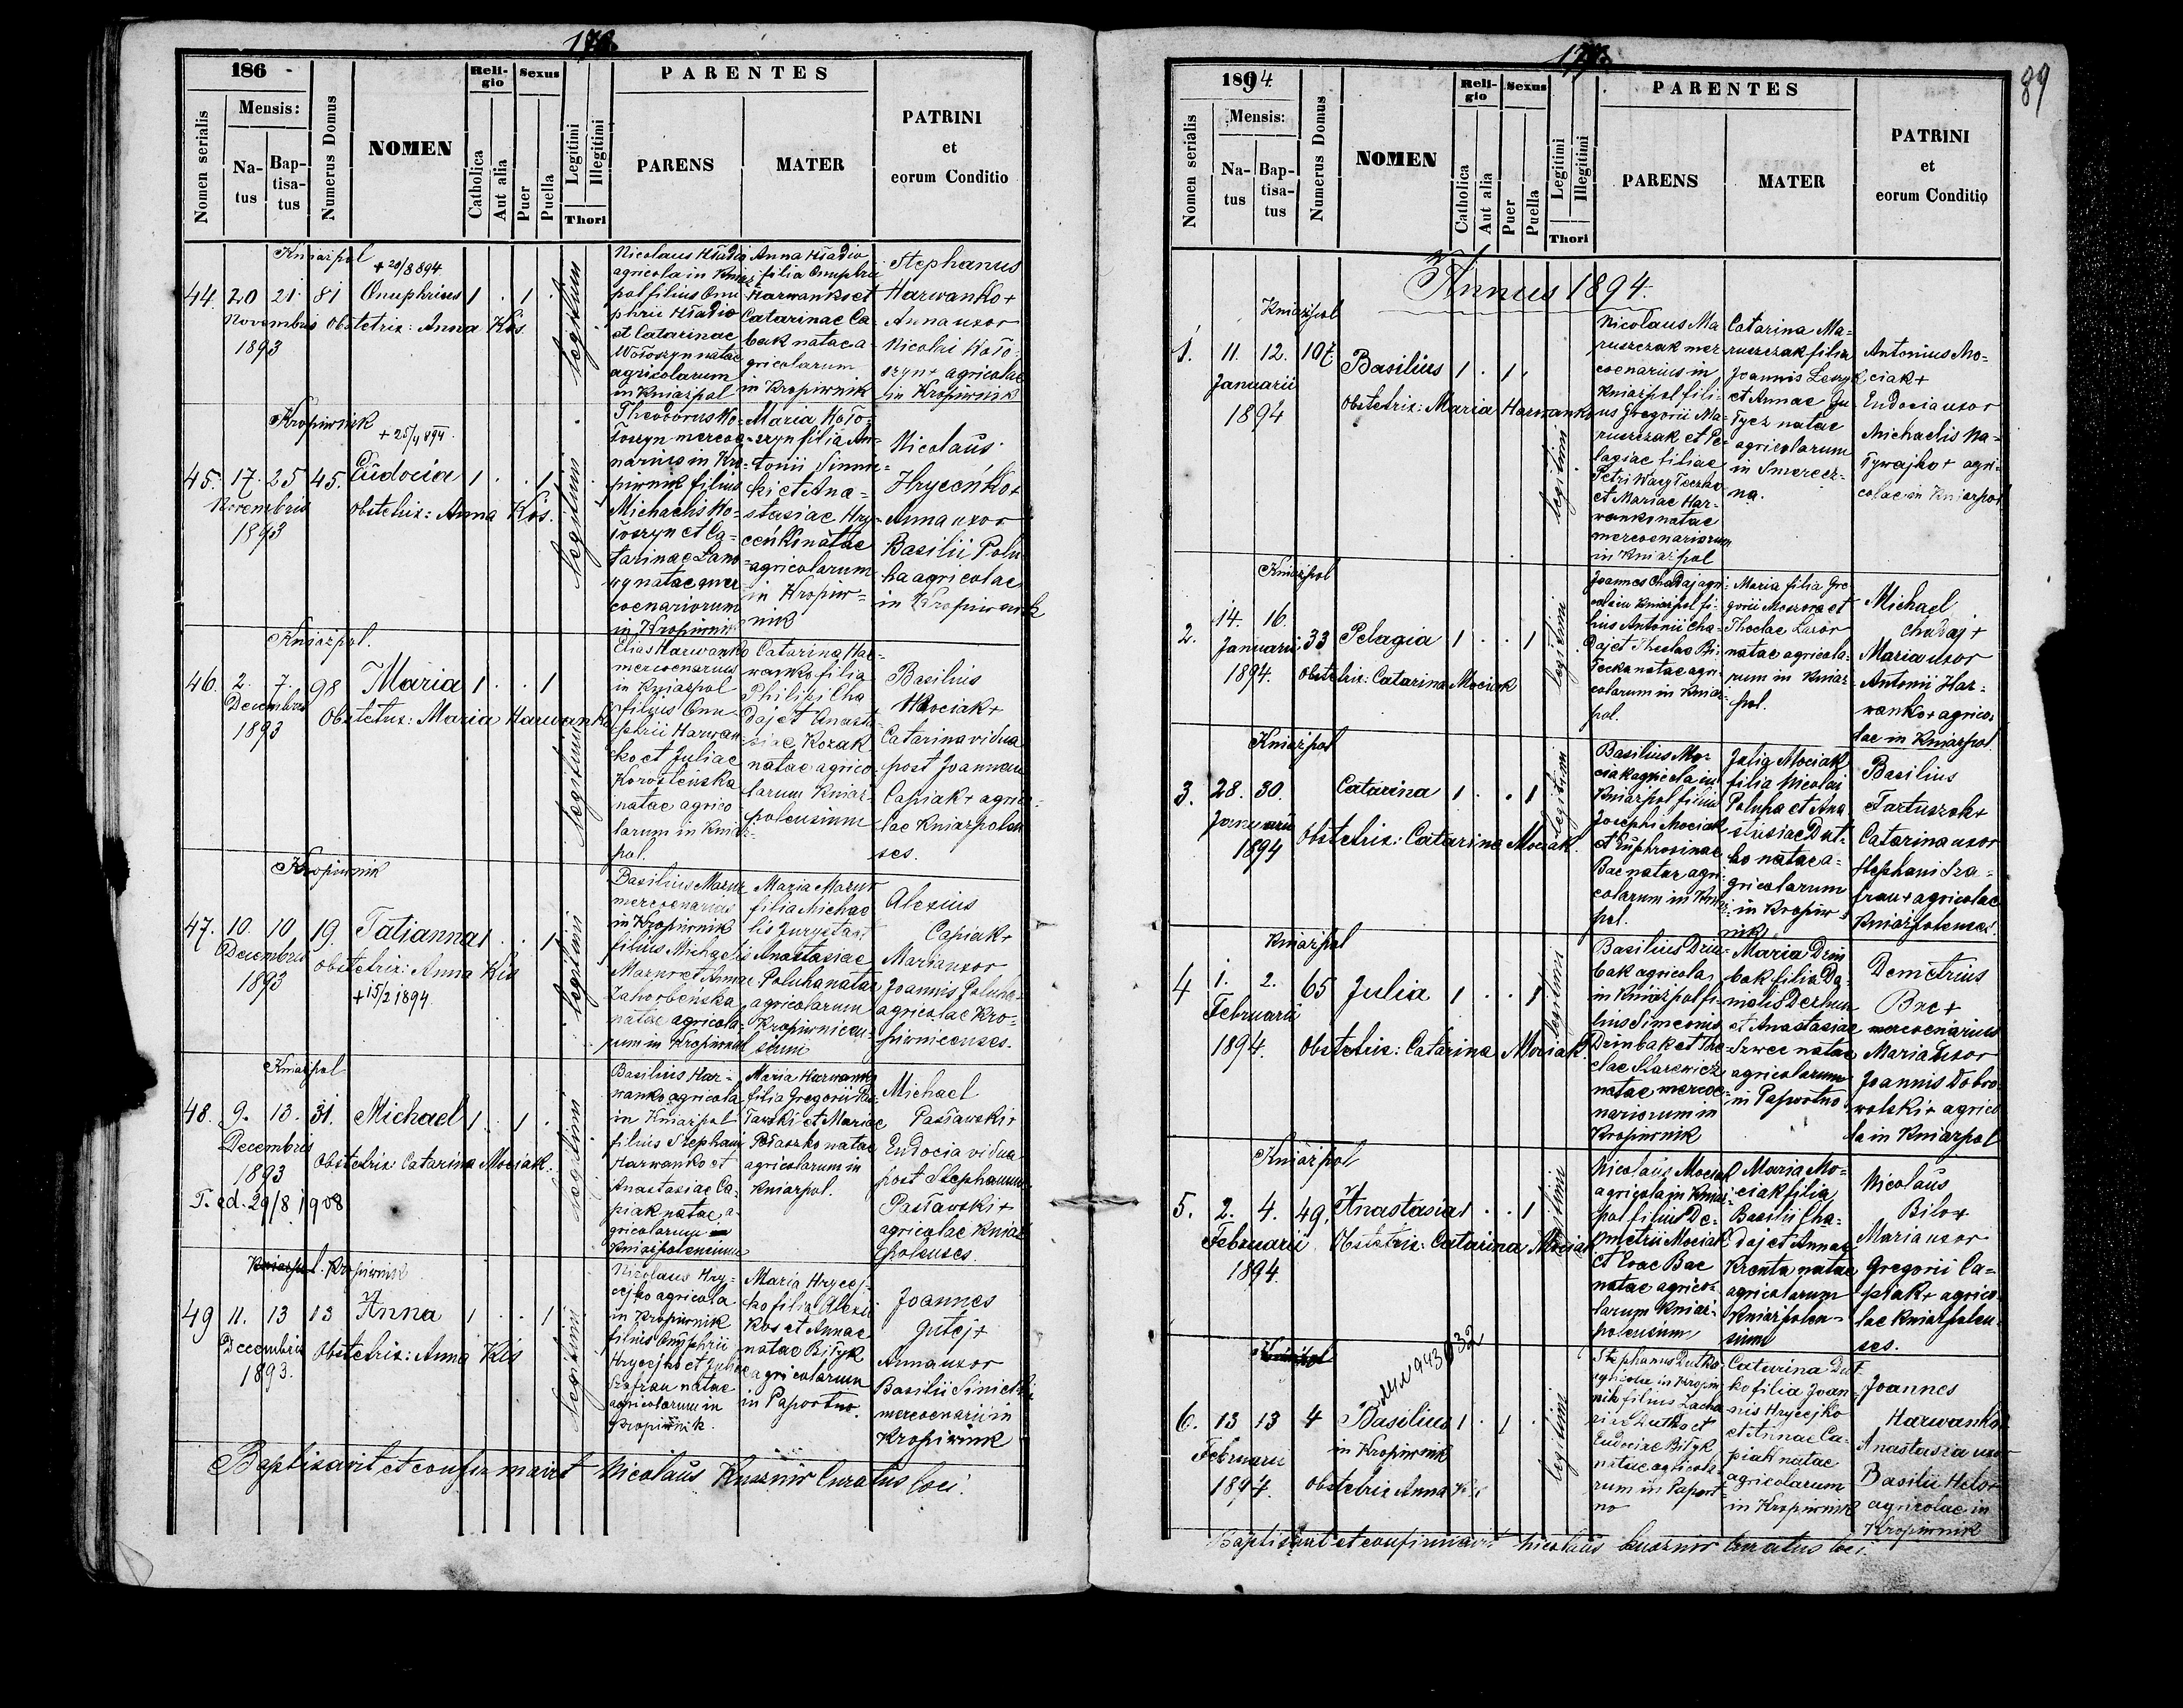 186
Nomen serialis
Mensis:
Na-
tus
Bap-
tisa-
tus
Numerus Domus
NOMEN
Reli-
gio
Catholica
Aut alia
Sexus
Puer
Puella
Legitimi
Illegitimi
Thori
PARENTES
PARENS
MATER
PATRINI
et
eorum Conditio
Kniażpol
+ 20/8 894
44. 20 21 81 Onuphrius 1 . 1 .
Novembris Obstetrix: Anna Kós
1893
legitimi
agricola in Kniaz
pol filius Onu
et Catarinae
Wołoszyn natae
agricolarum
in Kniazpol
filia Onuphrii
Harwanko et
Catarinae Ca-
pak natae a-
gricolarum
in Kropiwnik
Stephanus
Harwanko +
Anna uxor
Nicolai Woło-
szyn + agricolae
in Kropiwnik
Kropiwnik
+ 25/4 894.
45. 17. 25 45. Eudocia 1 . . 1
Novembris obstetrix: Anna Kós.
1893
legitimi
Theodorus Wo-
łoszyn merce-
narius in Kro-
piwnik filius
Michaelis Wo-
łoszyn et Ca-
tarinae
natae mer
coenariorum
in Kropiwnik
Maria Woło-
szyn filia An-
tonii Sinni-
ki et Ana-
stasiae Hry-
ceńko natae
agricolarum
in Kropiw-
nik
Nicolaus
Hryceńko +
Anna uxor
Basilii Polu-
ha agricolae
in Kropiwnik
Kniazpol.
46. 2. 7. 98 Maria 1 . . 1
Decembris Obstetrix: Maria Harwanko
1893
legitimi
Elias Harwanko
mercenarius
in Kniazpol
filius Onu-
phrii Harwan
ko et Juliae
natae agrico
larum in Kniaz-
pol.
Catarina Har-
wanko filia
Philipi Cha
daj et Anasta-
siae Kozak
natae agrico-
larum Kniaz-
polensium
Basilius
Mociak +
Catarina vidua
post Joannem
Capiak + agrico-
lae Kniazpolen
ses.
Kropiwnik
47. 10. 10 19. Tatianna 1 . . 1
Decembris obstetrix: Anna Kós
1893
+ 15/2 1894.
legitimi
Basilius Mazur
mercenarius
in Kropiwnik
filius Michaelis
Mazur et Annae
natae agricola-
rum in Kropiwnik
Maria Mazur
filia Michae
lis
Anastasiae
Poluha natae
agricolarum
Kropiwnicen-
sium
Alexius
Capiak +
Maria uxor
Joannis Poluha
agricolae Kro-
piwnicenses.
Kniazpol
48. 9. 13. 31. Michael 1 . 1 .
Decembris Obstetrix: Catarina Mociak.
1893
T. ed. 29/8 1908
legitimi
Basilius Har-
wanko agricola
in Kniazpol
filius Stephani
Harwanko et
Anastasiae Ca-
piak natae a-
gricolarum in
Kniazpolensium
Maria Harwanko
filia Gregorii Pas-
tawski et Mariae
natae
agricolarum in
Kniazpol.
Michael
Pastawski +
Eudocia vidua
post Stephanum
Pastawski +
agricolae Kniaz
polenses.
Kniazpol. Kropiwnik
49 11. 13 13 Anna 1 . . 1
Decembris Obstetrix: Anna Kós
1893.
legitimi
Nicolaus Hry-
cejko agricola
in Kropiwnik
filius Onuphrii
Hrycejko et
Szafran natae
agricolarum in
Kropiwnik.
Maria Hrycej-
ko filia Alexii
Kos et Annae
natae Biłyk
agricolarum
in Paportno.
Joannes
Gutej +
Anna uxor
Basilii Sinicki
mercenarii in
Kropiwnik
Baptisavit et confirmavit Nicolaus Kusznir Curatus loci.
89
1894.
Nomen serialis
Mensis:
Na-
tus
Bap-
tisa-
tus
Numerus Domus
NOMEN
Reli-
gio
Catholica
Aut alia
Sexus
Puer
Puella
Legitimi
Illegitimi
Thori
PARENTES
PARENS
MATER
PATRINI
et
eorum Conditio
Annus 1894.
Kniazpol
1. 11. 12. 107 Basilius 1 . 1 .
Januarii Obstetrix: Maria Harwanko
1894
legitimi
Nicolaus Ma
ruszczak mer
coenarius in
Kniazpol fili-
us Gregorii Ma-
ruszczak et Pe-
lagiae filiae
Petri
et Mariae Har-
wanko natae
mercoenariorum
in Kniazpol
Catarina Ma-
ruszczak filia
Joannis
et Annae
natae
agricolarum
in Smerecz-
na.
Antonius Mo-
ciak +
Eudocia uxor
Michaelis Na-
tywajko + agri-
colae in Kniazpol
Kniazpol
2. 14. 16. 33 Pelagia 1 . . 1
Januarii
1894. Obstetrix: Catarina Mociak
legitimi
Joannes Chadaj agri-
cola in Kniazpol fi-
lius Antonii Cha-
daj et Theclae
natae agri-
colarum in Kniaz-
pol.
Maria filia Gre
gorii Mazur et
Theclae Lazor
natae agricola-
rum in Kniaz-
pol.
Michael
Chadaj +
Maria uxor
Antonii Har-
wanko + agrico-
lae in Kniazpol.
Kniazpol
3. 28. 30. Catarina 1 . . 1
Januarii Obstetrix: Catarina Mociak.
1894
legitimi
Basilius Mo-
ciak agricola in
Kniazpol filius
Josephi Mociak
et Euphrosinae
Bac natae agri-
colarum in Kniaz-
pol.
Julia Mociak
filia Nicolai
Poluha et Ana
stasiae Dut-
ko natae a-
gricolarum
in Kropiw-
nik
Basilius
Jartuszok +
Catarina uxor
Stephani Sza-
fran + agricolae
Kniazpolenses.
Kniazpol
4 1. 2. 65 Julia 1 . . 1
Februarii
1894. Obstetrix: Catarina Mociak.
legitimi
Basilius Drim-
bak agricola
in Kniazpol fi-
lius Simeonis
Drimbak et The-
clae Starewicz
natae mercoe-
nariorum in
Kropiwnik
Maria Drim
bak filia Da-
nielis
et Anastasiae
Szwec natae
agricolarum
in Paportno
Demetrius
Bac +
mercoenarius
Maria uxor
Joannis Dobro-
wolski + agrico
la in Kniazpol
Kniazpol
5. 2. 4. 49. Anastasia 1 . . 1
Februarii Obstetrix: Catarina Mociak
1894.
legitimi
Nicolaus Mociak
agricola in Kniaz-
pol filius De-
metrii Mociak
et Evae Bac
natae agrico-
larum Kniaz-
polensium
Maria Mo-
ciak filia
Basilii Cha-
daj et Annae
Krenta natae
agricolarum
Kniazpolen-
sium
Nicolaus
Bilo +
Maria uxor
Gregorii Ca-
piak + agrico
lae Kniazpolen
ses.
Kniazpol
6. 13 13 4 Basilius 1 . 1 .
in Kropiwnik
Februarii
1894. Obstetrix Anna Kós
legitimi
Stephanus Dutko
agricola in Kropiw
nik filius Zacha
riae Dutko et
Eudociae Biłyk
natae agricola-
rum in Paport-
no
Catarina Dut-
ko filia Joan-
nis Hrycejko
et Annae Ca-
piak natae
agricolarum
in Kropiwnik
Joannes
Harwanko
Anastasia uxor
Basilii
agricolae in
Kropiwnik
Baptisavit et confirmavit Nicolaus Kusznir Curatus loci.